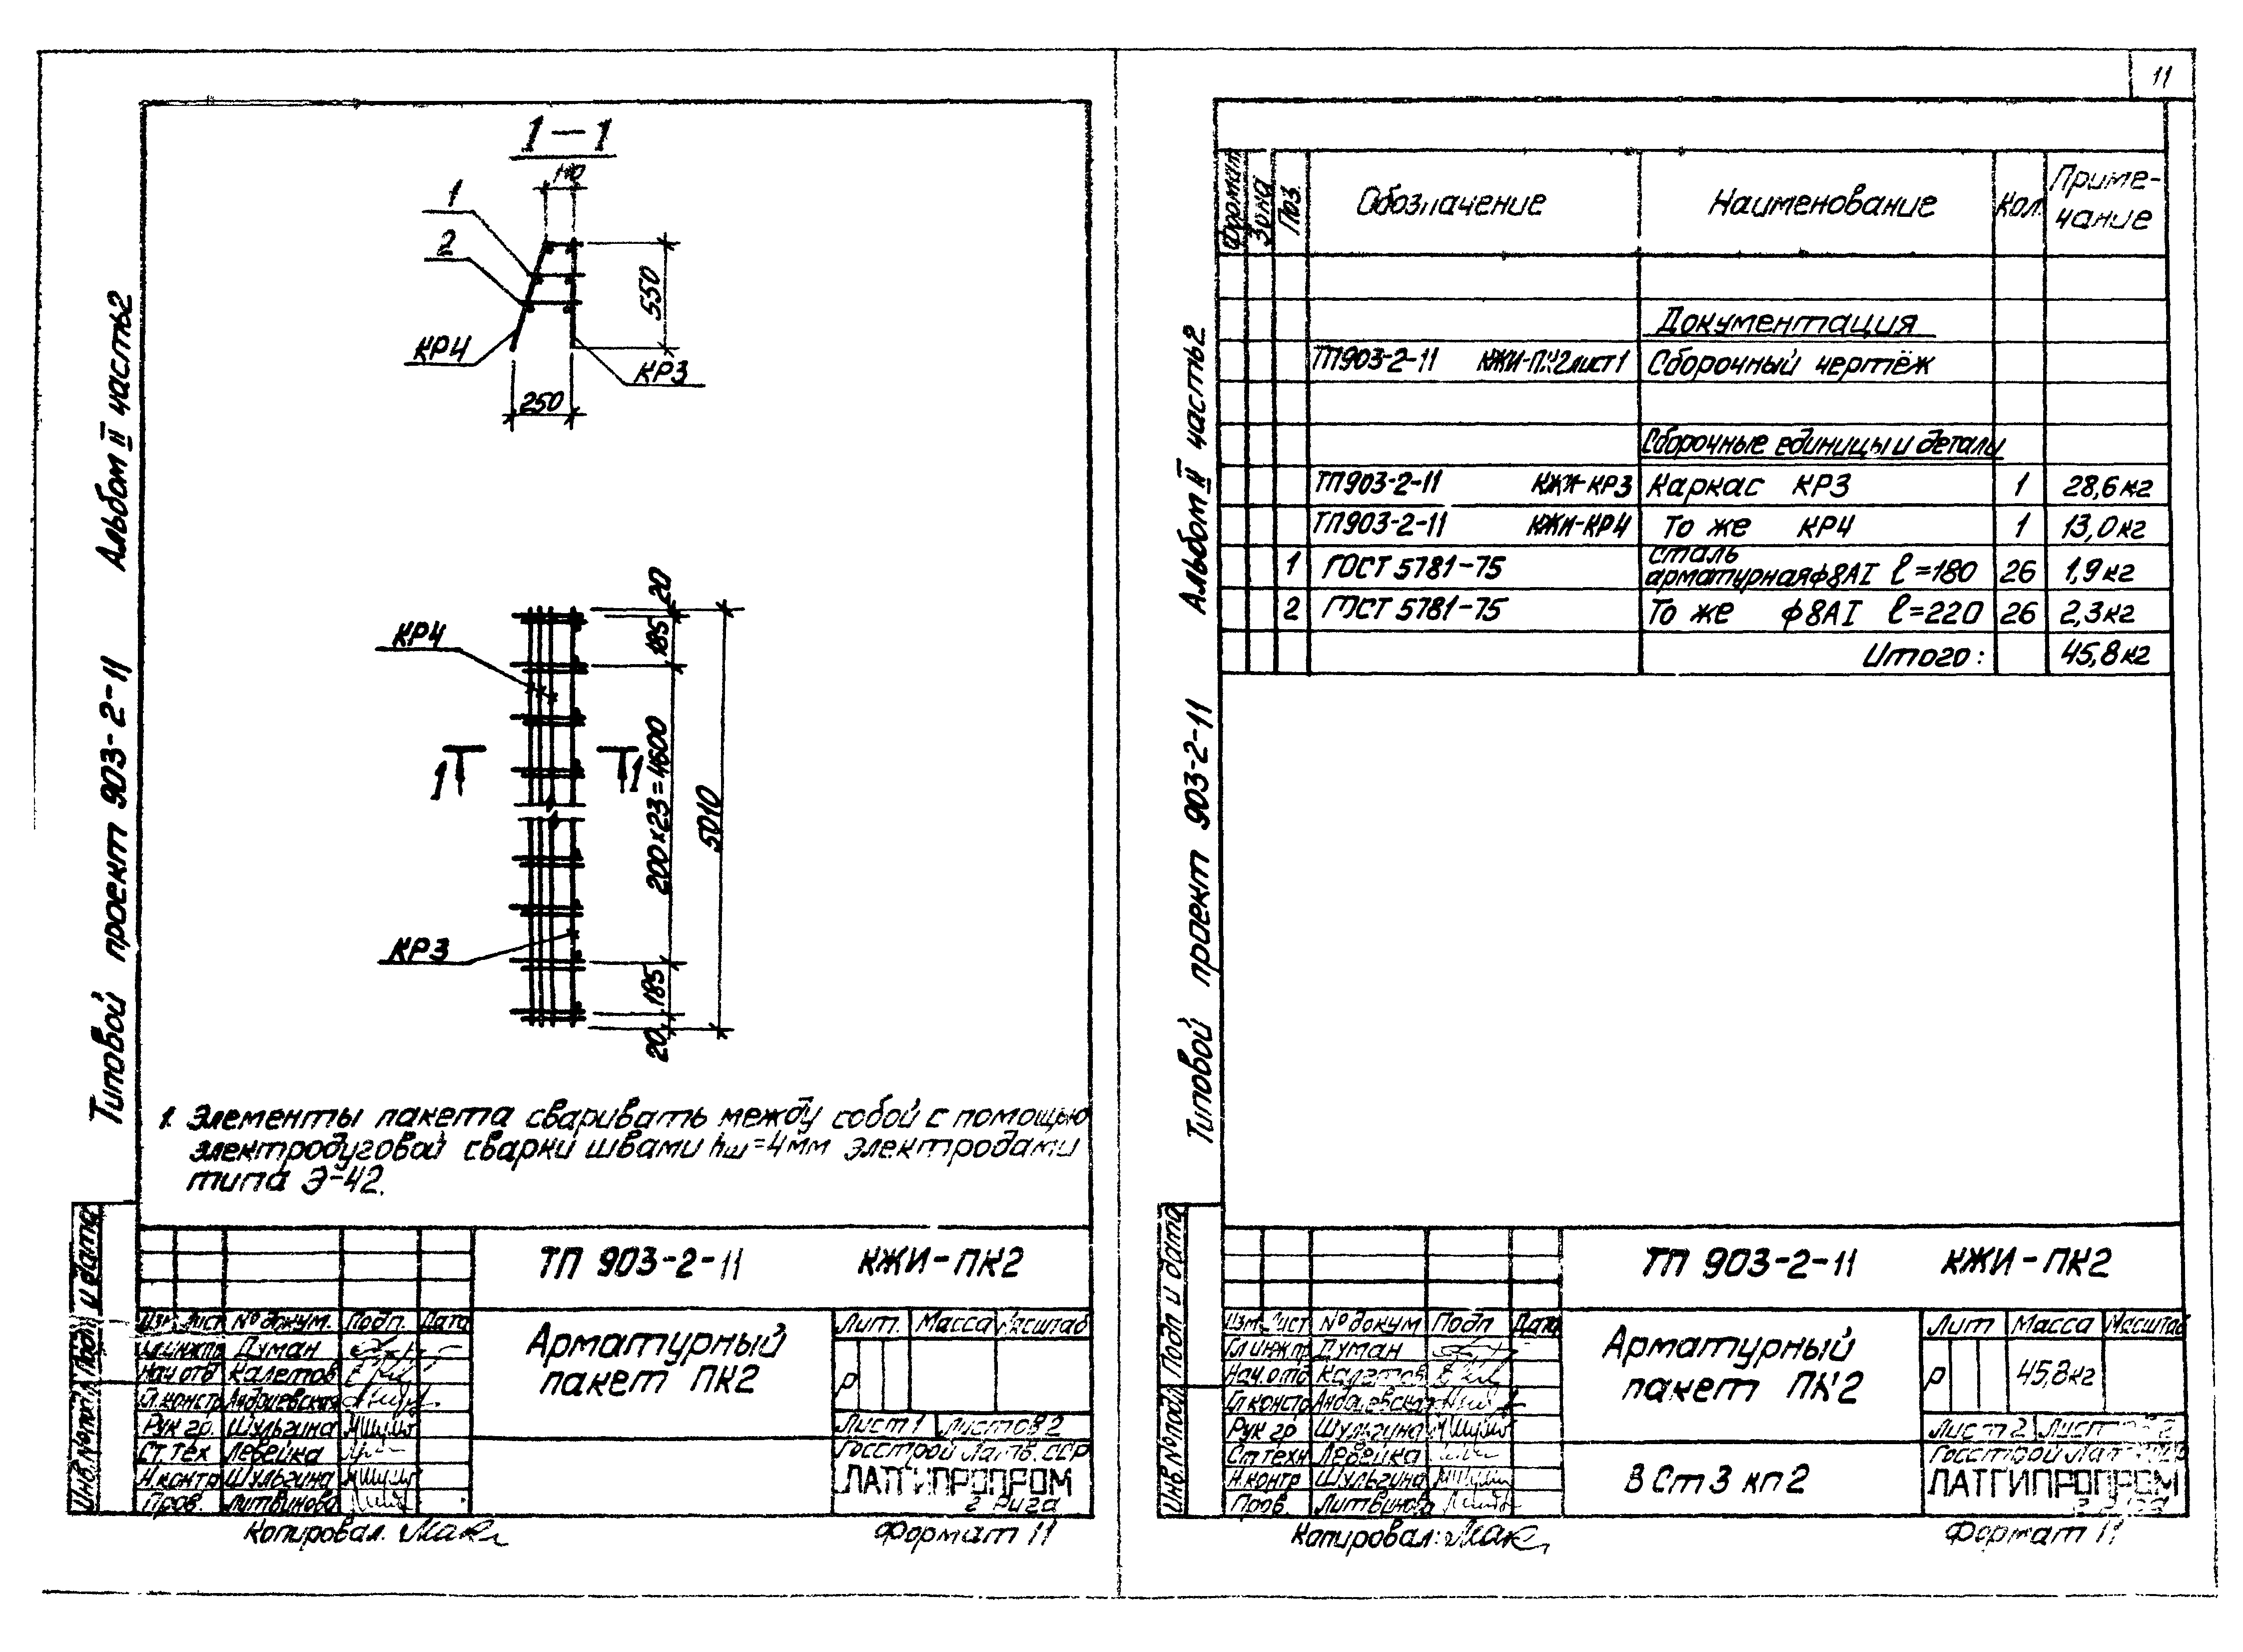 11
Типовой проект 903-2-11 Альбом II часть2
1-1
1
2
550
КР4
КР3
250
20
185
КР4
1
1
200х23=4600
5010
КР3
185
20
1. Элементы пакета сваривать между собой с помощью
электродуговой сварки швами hш=4мм электродами
типа Э-42.
Подп. и дата
Инв.№подл
ТП 903-2-11 КЖИ-ПК2
Изм Лист №докум. Подп. Дата
Гл.инж.пр Думан
Нач отд Калетов
Гл.констр Андриевская
Рук гр. Шульгина
Ст.тех Левейка
Н.контр Шульгина
Пров. Литвинова
Арматурный
пакет ПК2
Лит. Масса Масштаб
Р
Лист 1 Листов 2
Госстрой Латв.ССР
ЛАТГИПРОПРОМ
г Рига
Копировал.
Формат 11
Типовой проект 903-2-11 Альбом II часть2
Формат Зона Поз. Обозначение Наименование Кол. Приме-
чание
Документация
ТП903-2-11 КЖИ-ПК2лист1 Сборочный чертёж
Сборочные единицы и детали
ТП903-2-11 КЖИ-КР3 Каркас КР3 1 28,6кг
ТП903-2-11 КЖИ-КР4 То же КР4 1 13,0кг
1 ГОСТ 5781-75 сталь
арматурнаяϕ8АI ℓ=180 26 1,9кг
2 ГОСТ 5781-75 То же ϕ8АI ℓ=220 26 2,3кг
Итого: 45,8кг
Подп и дата
Инв.№подл
ТП 903-2-11 КЖИ-ПК2
Изм. Лист №докум Подп Дата
Гл инж.пр Думан
Нач.отд Калетов
Гл констр Андриевская
Рук гр Шульгина
Ст техн Левейка
Н.контр Шульгина
Пров. Литвинова
Арматурный
пакет ПК2
Лит Масса Масштаб
Р 45,8кг
Лист 2 Листов 2
Госстрой Латв.ССР
В Ст 3 кп 2
ЛАТГИПРОПРОМ
г Рига
Копировал:
Формат 11